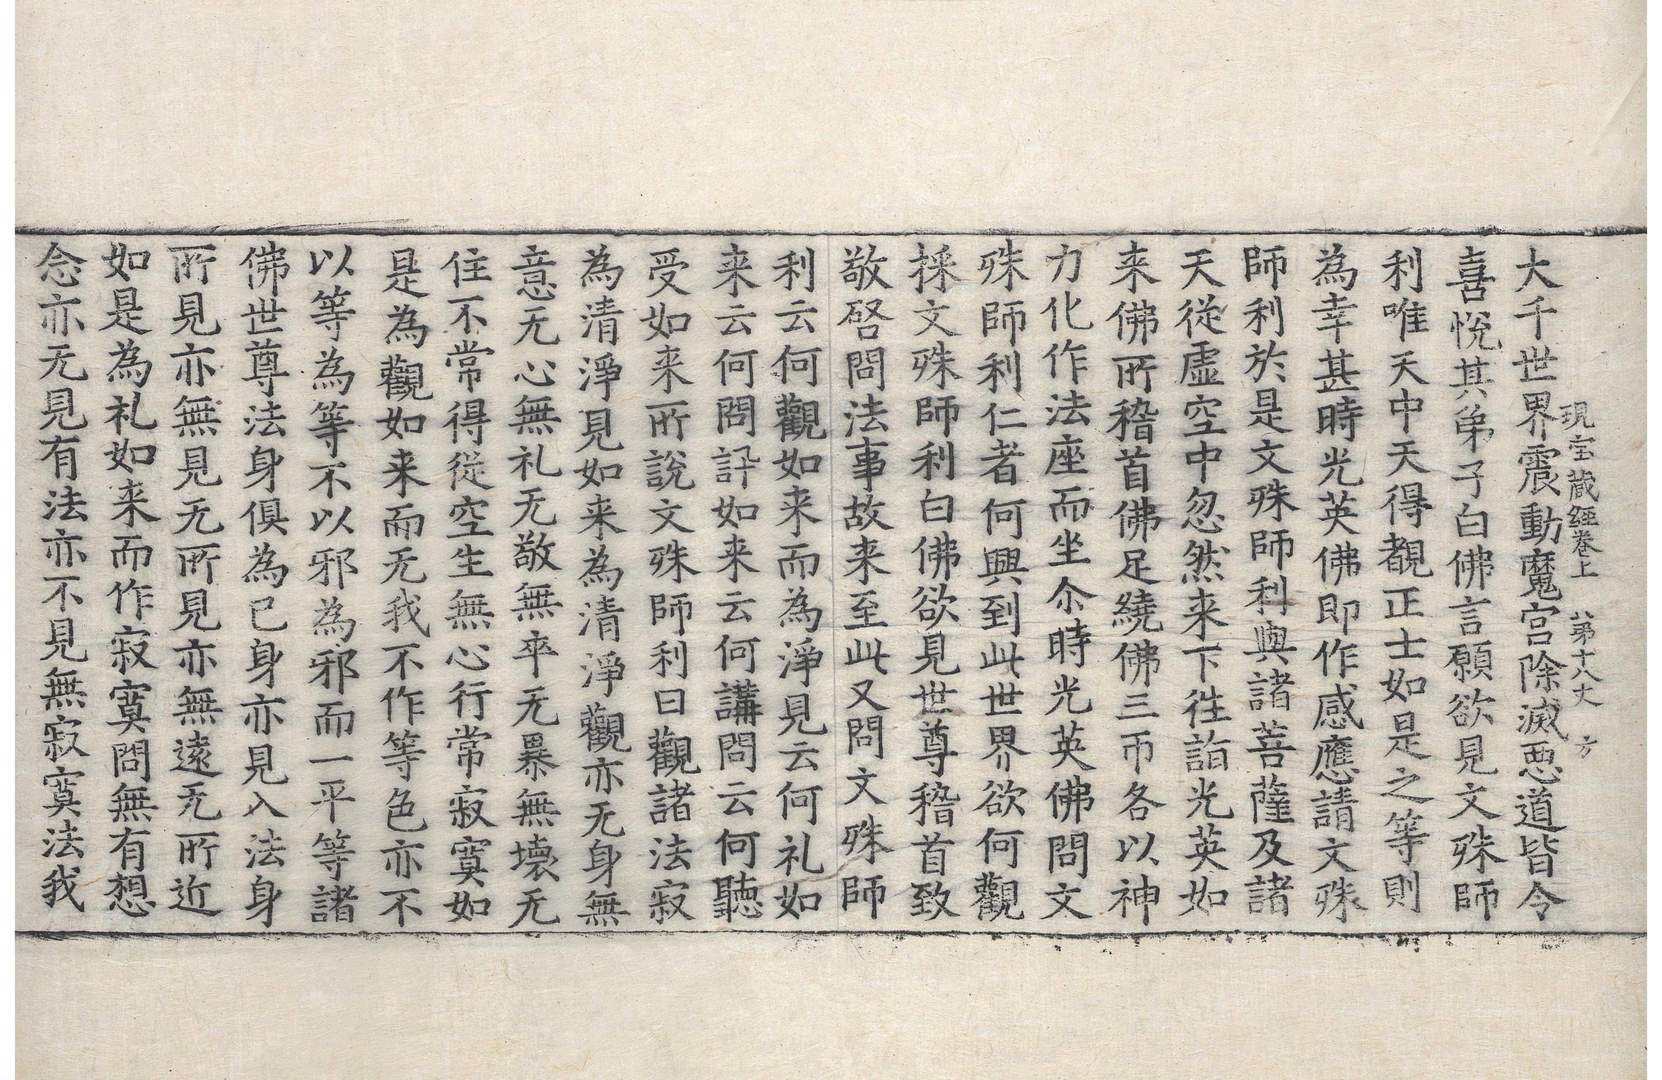 現宝蔵経巻上 第十八丈 方
大千世界震動魔宮除滅惡道皆令
喜悅其弟子白佛言願欲見文殊師
利唯天中天得覩正士如是之等則
為幸甚時光英佛即作感應請文殊
師利於是文殊師利與諸菩薩及諸
天從虛空中忽然来下往詣光英如
来佛所稽首佛足繞佛三帀各以神
力化作法座而坐尒時光英佛問文
殊師利仁者何興到此世界欲何觀
採文殊師利白佛欲見世尊稽首致
敬啓問法事故来至此又問文殊師
利云何觀如来而為淨見云何礼如
来云何問訊如来云何講問云何聽
受如来所說文殊師利曰觀諸法寂
為清淨見如来為清淨觀亦无身無
意无心無礼无敬無卒无暴無壊无
住不常得從空生無心行常寂寞如
是為觀如来而无我不作等色亦不
以等為等不以邪為邪而一平等諸
佛世尊法身俱為已身亦見入法身
所見亦無見无所見亦無遠无所近
如是為礼如来而作寂寞問無有想
念亦无見有法亦不見無寂寞法我